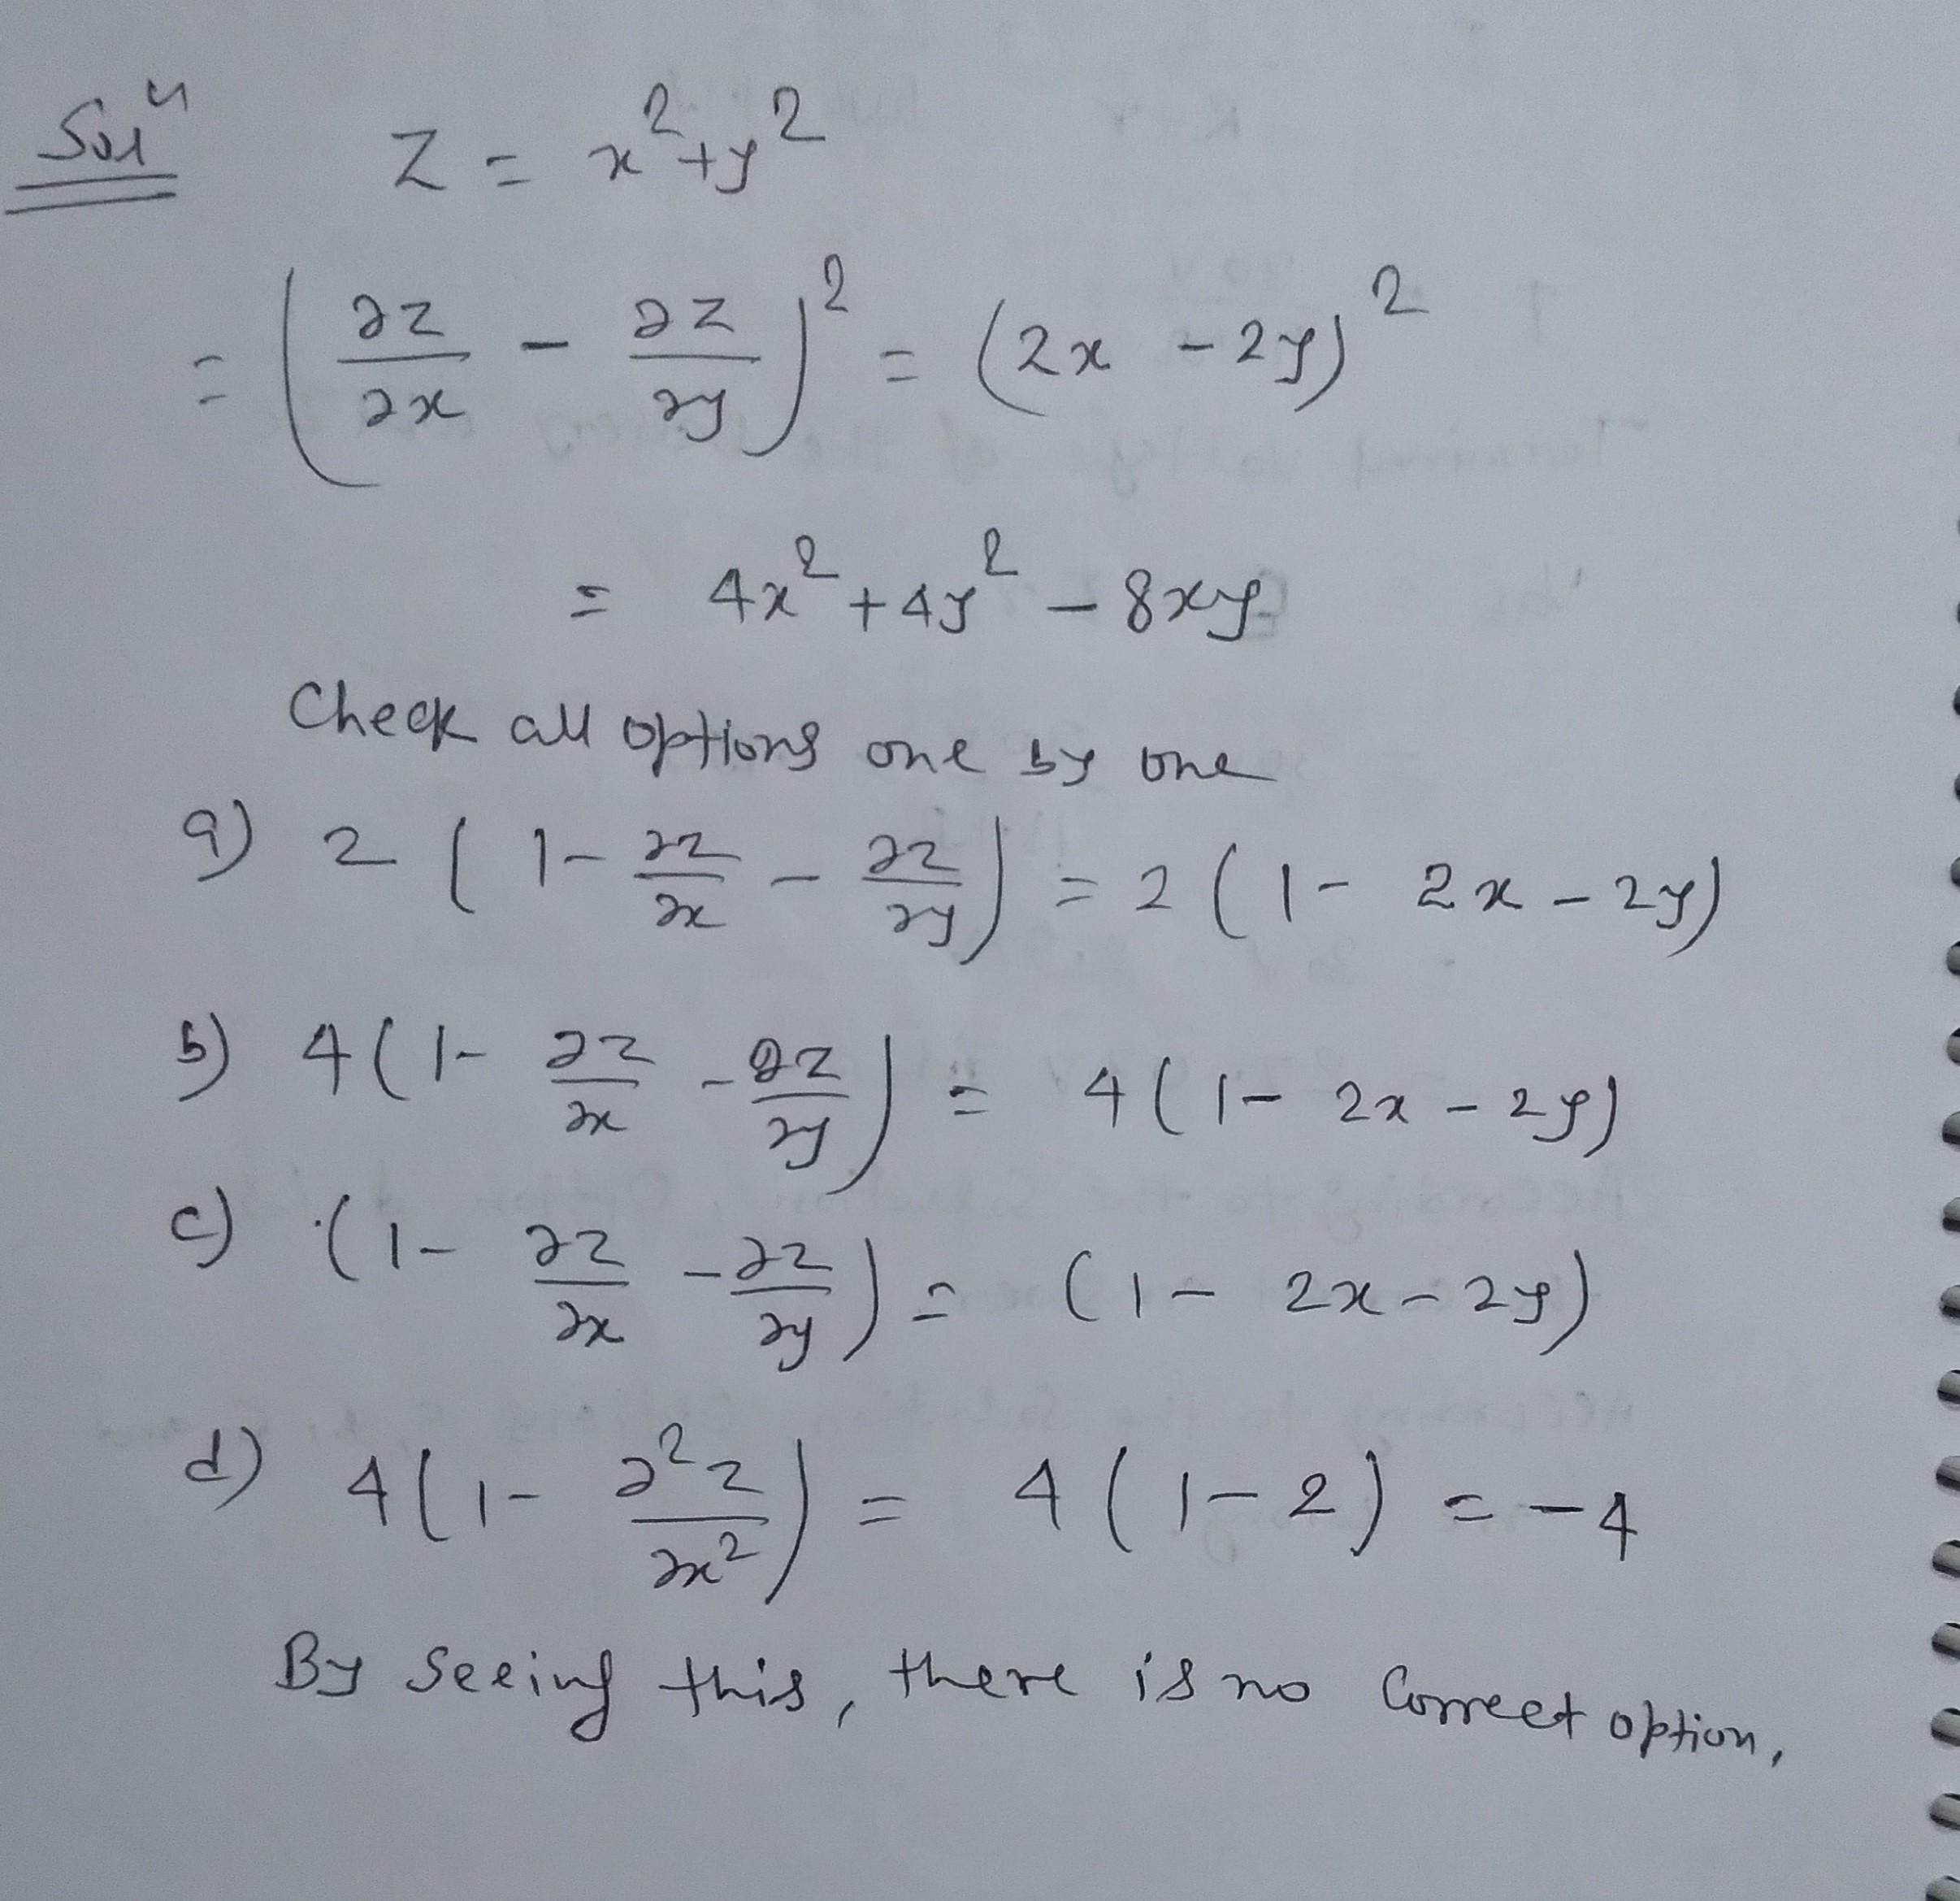 Solⁿ Z = x²+y²
= (∂z/∂x - ∂z/∂y)² = (2x - 2y)²
= 4x² + 4y² - 8xy
Check all options one by one
a) 2 (1 - ∂z/∂x - ∂z/∂y) = 2 (1 - 2x - 2y)
b) 4 (1 - ∂z/∂x - ∂z/∂y) = 4 (1 - 2x - 2y)
c) (1 - ∂z/∂x - ∂z/∂y) = (1 - 2x - 2y)
d) 4 (1 - ∂²z/∂x²) = 4 (1 - 2) = -4
By seeing this, there is no correct option,